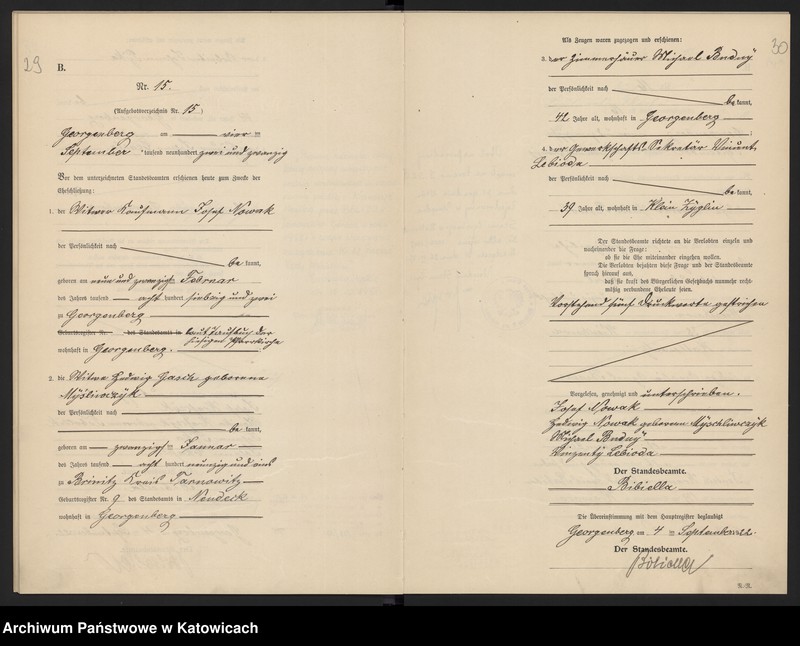 29
B.
Nr. 15.
(Aufgebotsverzeichnis Nr. 15)
Georgenberg = vier =
September tausend neunhundert zwei und zwanzig
Vor dem unterzeichneten Standesbeamten erschienen heute zum Zwecke der
Eheschließung:
1. der Witwer Kaufmann Josef Nowak
der Persönlichkeit nach
be kannt,
geboren am neun und zwanzigs= Februar
des Jahres tausend acht hundert siebzig und zwei
zu Georgenberg
Geburtsregister Nr. des Standesamts in laut Taufbuch der
hiesigen Pfarrkirche
wohnhaft in Georgenberg.
2. die Witwe Hedwig Gasch geborene
Myśliwczyk
der Persönlichkeit nach
be kannt,
geboren am zwanzigs= Januar
des Jahres tausend acht hundert neunzig und eins
zu Brinitz Kreis Tarnowitz
Geburtsregister Nr. 9 des Standesamts in Neudeck
wohnhaft in Georgenberg
30
Als Zeugen waren zugezogen und erschienen:
3. der Zimmerhäuer Michael Budny
der Persönlichkeit nach
be kannt,
42 Jahre alt, wohnhaft in Georgenberg
;
4. der Gewerkschafts Sekretär Vinzent
Lebioda
der Persönlichkeit nach
be kannt,
39 Jahre alt, wohnhaft in Klein Zyglin
Der Standesbeamte richtete an die Verlobten einzeln und
nacheinander die Frage:
ob sie die Ehe miteinander eingehen wollen.
Die Verlobten bejahten diese Frage und der Standesbeamte
sprach hierauf aus,
daß sie kraft des Bürgerlichen Gesetzbuchs nunmehr recht-
mäßig verbundene Eheleute seien.
Vorstehend fünf Druckworte gestrichen
Vorgelesen, genehmigt und unterschrieben.
Josef Nowak
Hedwig Nowak geborene Myschliwczyk
Michael Budny
Vinzenty Lebioda
Der Standesbeamte.
Bibiella
Die Übereinstimmung mit dem Hauptregister beglaubigt
Georgenberg am 4 = September 1922.
Der Standesbeamte.
Bibiella
Archiwum Państwowe w Katowicach